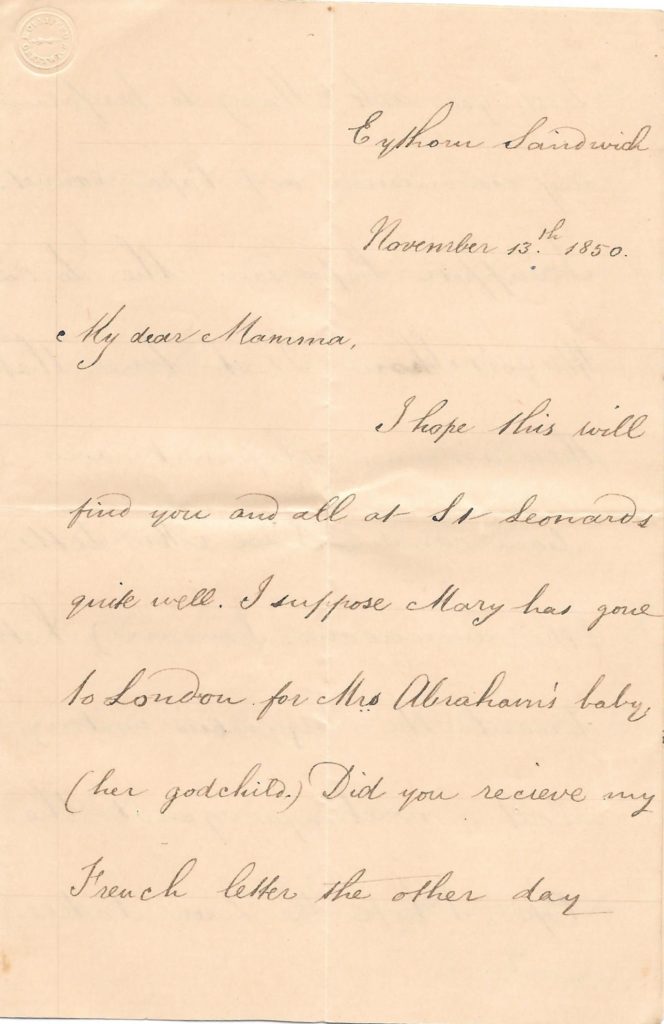 Eythorn Sandwich
November 13.th 1850.
My dear Mamma,
I hope this will
find you and all at St Leonards
quite well. I suppose Mary has gone
to London for Mrs Abraham's baby,
(her godchild.) Did you recieve my
French letter the other day